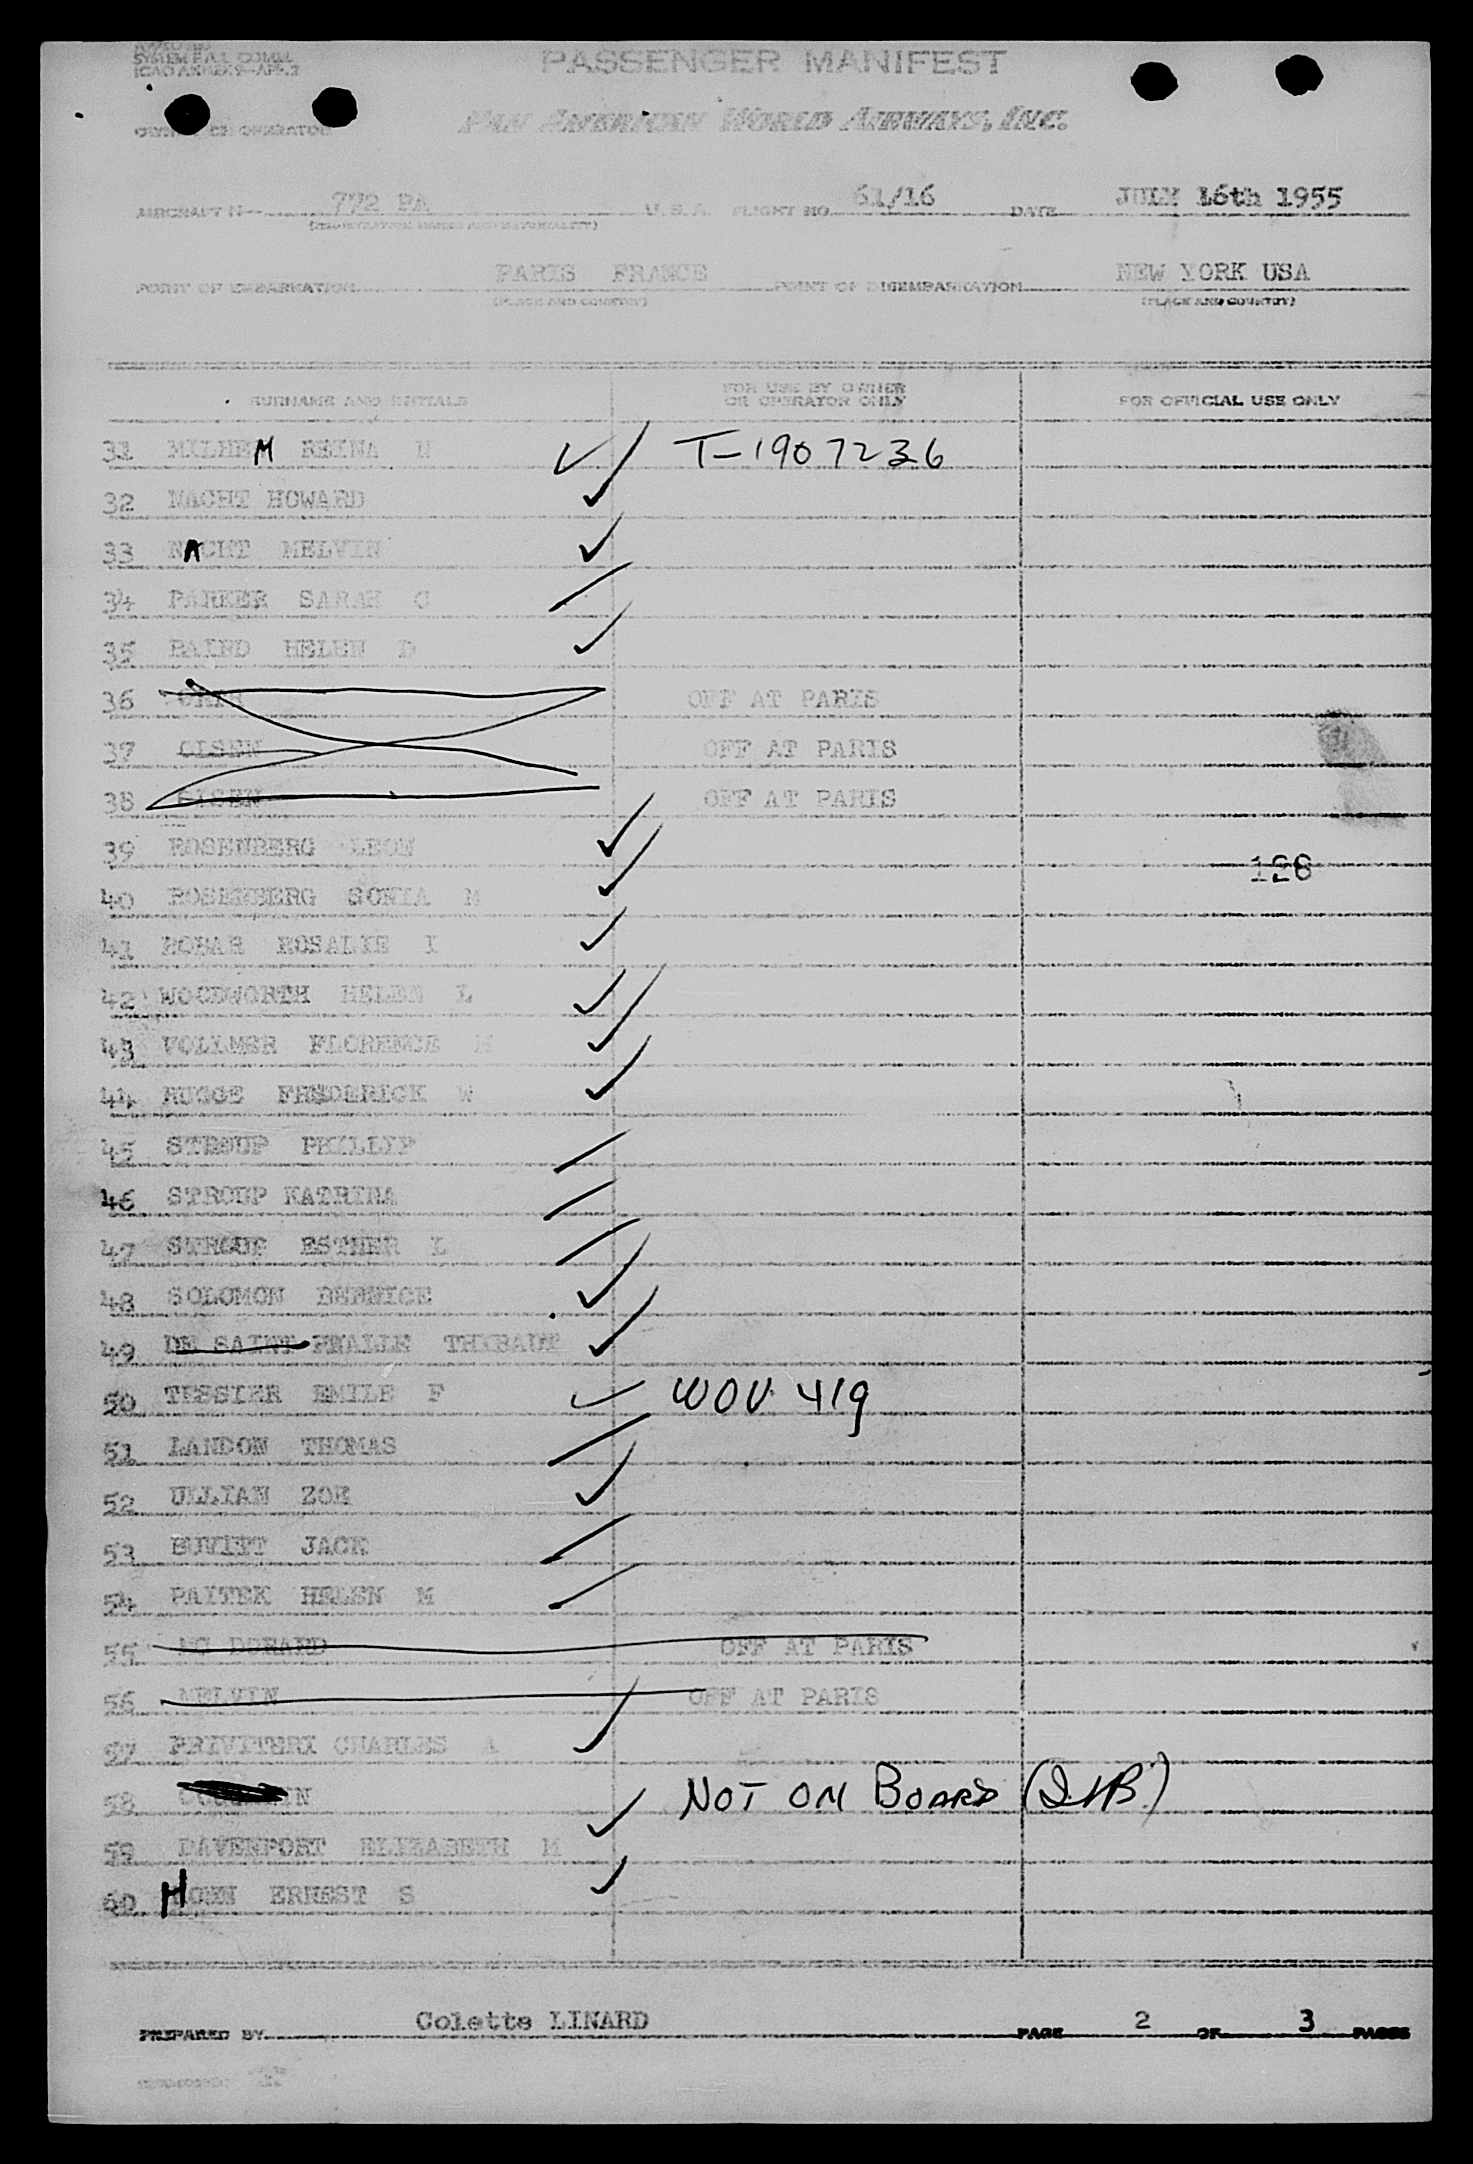 PASSENGER MANIFEST
PAN AMERICAN WORLD AIRWAYS, INC.
AIRCRAFT N 772 PA U. S. A. FLIGHT NO. 61/16 DATE JULY 16th 1955
POINT OF EMBARKATION PARIS FRANCE POINT OF DISEMBARKATION NEW YORK USA
(PLACE AND COUNTRY) (PLACE AND COUNTRY)
SURNAME AND INITIALS FOR USE BY OWNER OR OPERATOR ONLY FOR OFFICIAL USE ONLY
31 MILHEM REINA T-1907236
32 NACHT HOWARD
33 NACHT MELVIN
34 PARKER SARAH C
35 BAIRD HELEN D
36 OFF AT PARIS
37 OLSEN OFF AT PARIS
38 OLSEN OFF AT PARIS
39 ROSENBERG LEON
128
40 ROSENBERG SONIA M
41 ROSALIE I
42 WOODWORTH HELEN L
43 VOLLMER FLORENCE
44 RUGGE FREDERICK W
45 STROUP PHILLIP
46 STROUP KATRINA
47 STROUP ESTHER L
48 SOLOMON BERNICE
49 DE SAINT PHALLE THIBAUT
50 TESSIER EMILE F WOV 419
51 LANDON THOMAS
52 ULLIAN ZOE
53 JACK
54 PAITEK HELEN M
55 OFF AT PARIS
56 MELVIN OFF AT PARIS
57 PRIVITERI CHARLES A
58 NOT ON BOARD
59 DAVENPORT ELIZABETH M
60 HOHN ERNEST S
PREPARED BY Colette LINARD PAGE 2 OF 3 PAGES